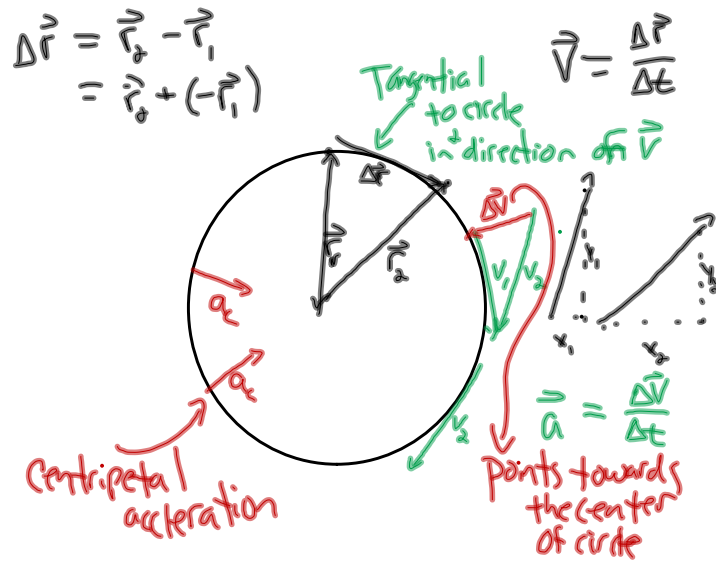 Δr⃗ = r⃗₂ - r⃗₁
= r⃗₂ + (-r⃗₁)
v⃗ = Δr⃗/Δt
Tangential
to circle
in direction of v⃗
Δr⃗
r⃗₁
r⃗₂
Δv⃗
v₁
v₂
y₁
y₂
x₁
x₂
a⃗ = Δv⃗/Δt
v₂
a꜀
a꜀
Centripetal
accleration
points towards
the center
of circle